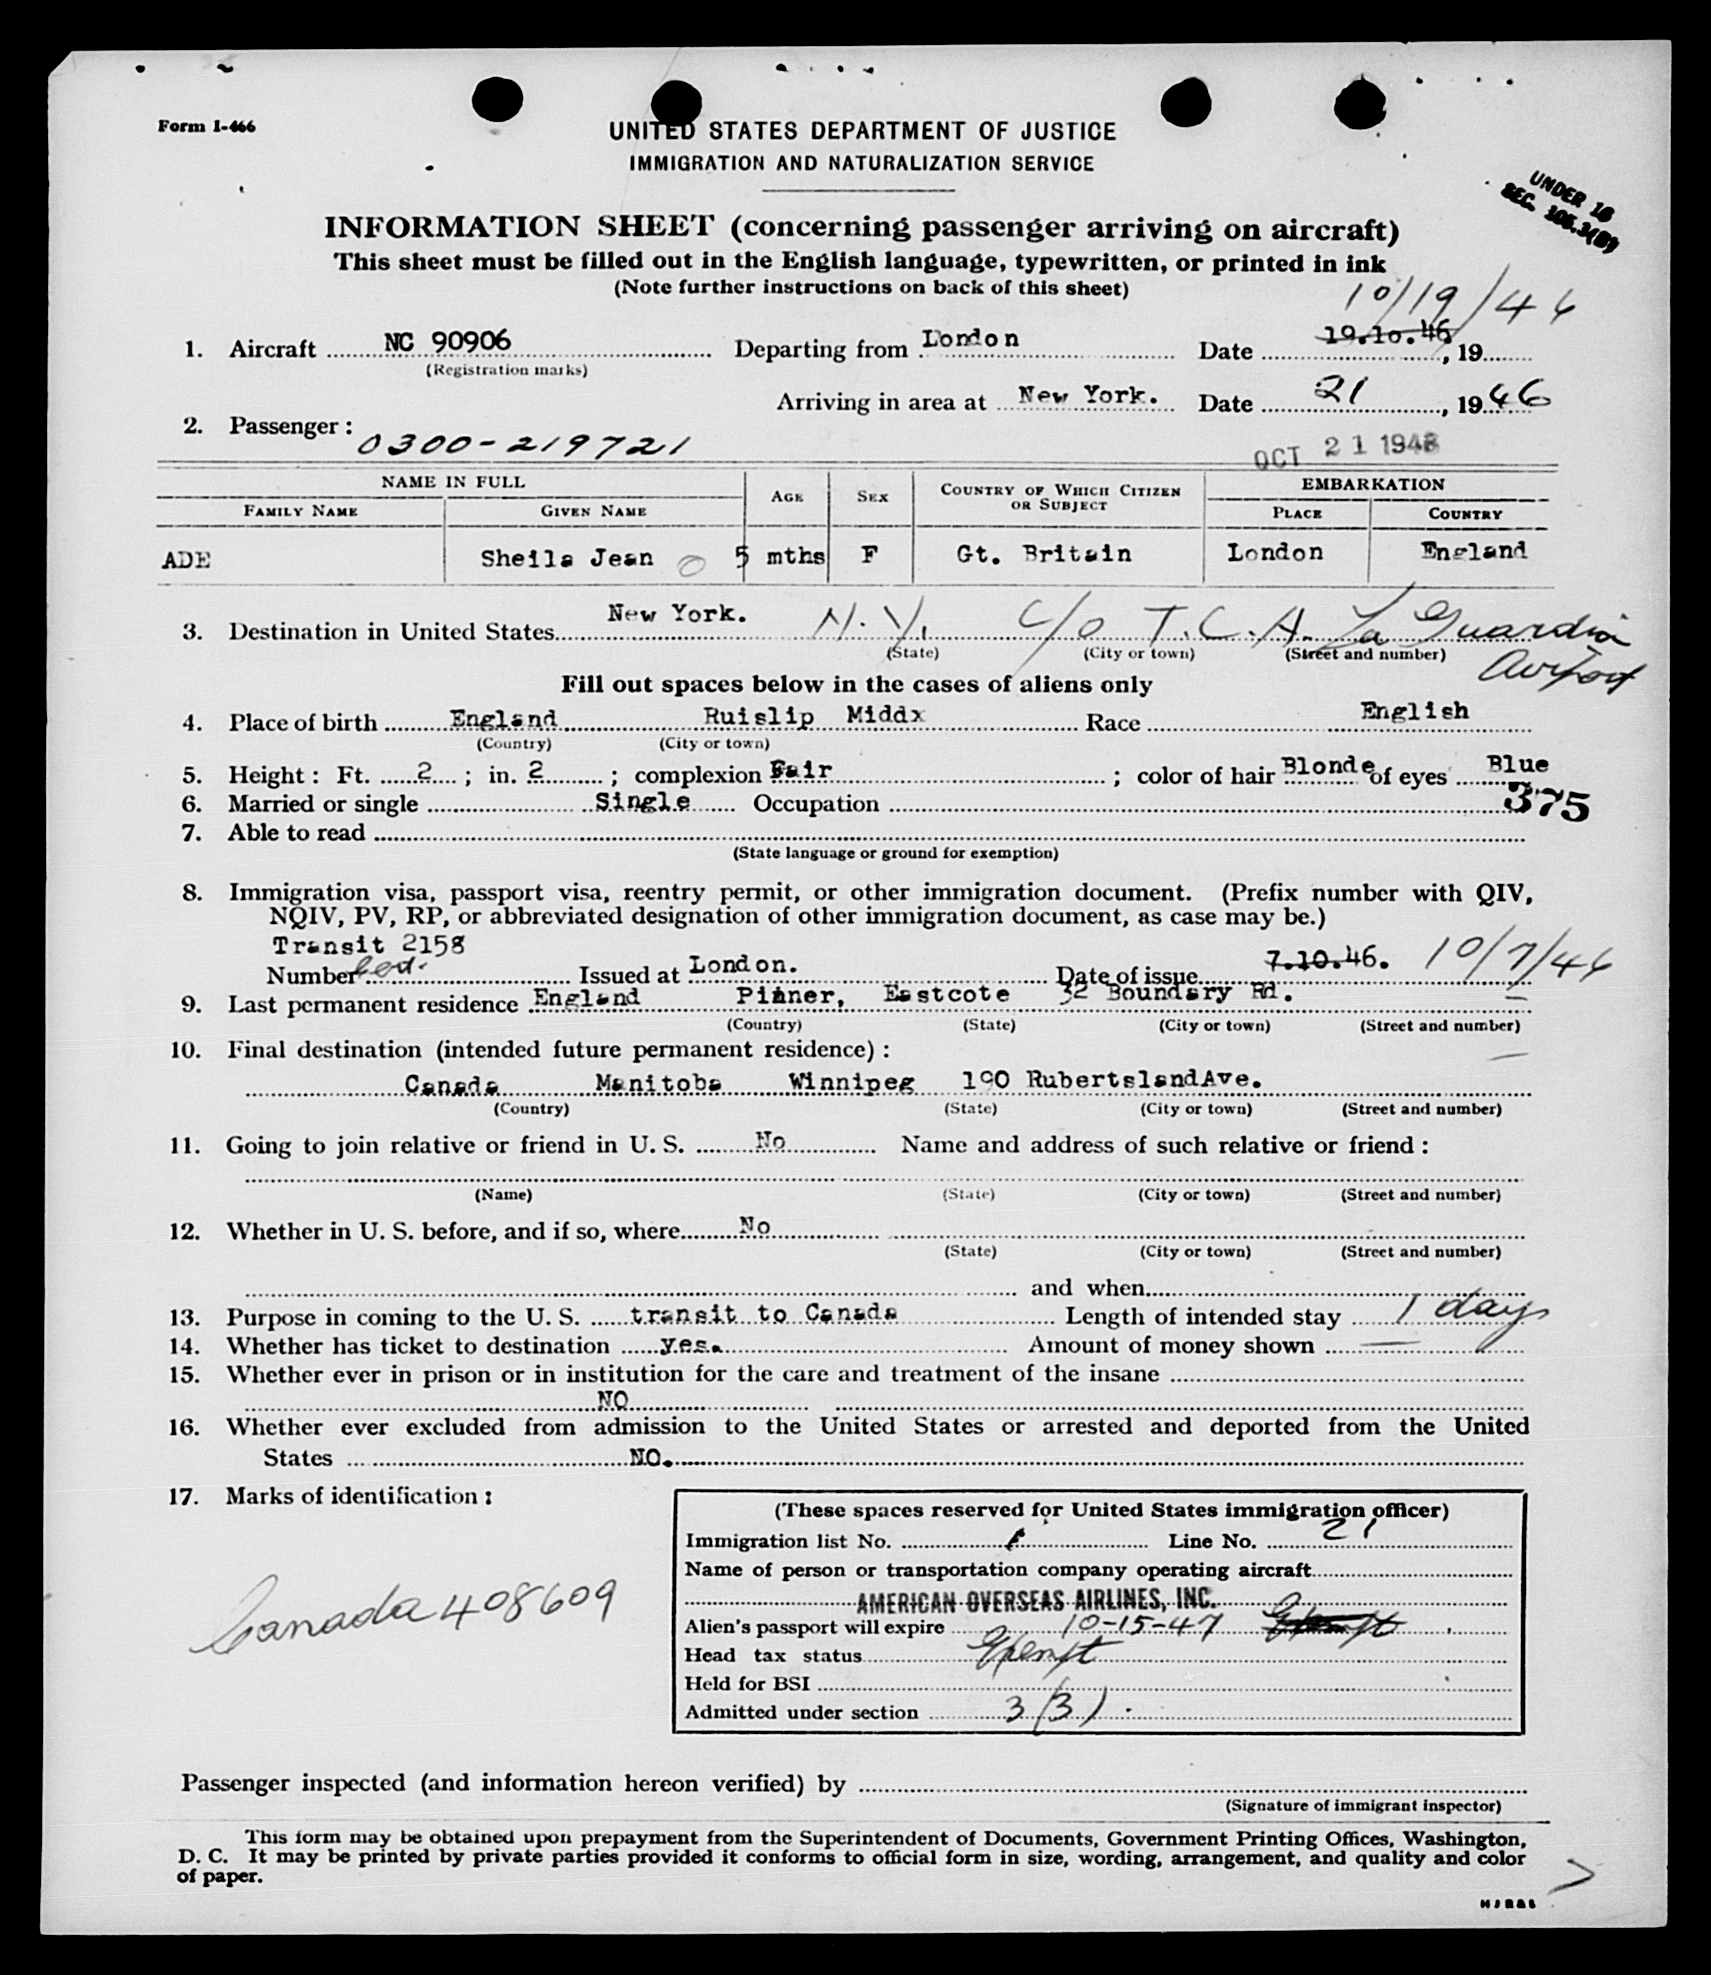 Form I-466
UNITED STATES DEPARTMENT OF JUSTICE
IMMIGRATION AND NATURALIZATION SERVICE
UNDER 16
SEC. 105.3(B)
INFORMATION SHEET (concerning passenger arriving on aircraft)
This sheet must be filled out in the English language, typewritten, or printed in ink
(Note further instructions on back of this sheet)
10/19/46
1. Aircraft NC 90906 Departing from London Date 19.10.46, 19
(Registration marks)
Arriving in area at New York. Date 21, 1946
2. Passenger:
0300-219721
OCT 21 1946
NAME IN FULL AGE SEX COUNTRY OF WHICH CITIZEN OR SUBJECT EMBARKATION
FAMILY NAME GIVEN NAME PLACE COUNTRY
ADE Sheila Jean 5 mths F Gt. Britain London England
New York. N.Y. c/o T.C.A. La Guardia
3. Destination in United States
(State) (City or town) (Street and number)
Airport
Fill out spaces below in the cases of aliens only
4. Place of birth England Ruislip Middx Race English
(Country) (City or town)
5. Height: Ft. 2; in. 2; complexion Fair; color of hair Blonde of eyes Blue
6. Married or single Single Occupation
375
7. Able to read
(State language or ground for exemption)
8. Immigration visa, passport visa, reentry permit, or other immigration document. (Prefix number with QIV,
NQIV, PV, RP, or abbreviated designation of other immigration document, as case may be.)
Transit 2158
Number Issued at London. Date of issue 7.10.46. 10/7/46
9. Last permanent residence England Pinner, Eastcote 32 Boundary Rd.
(Country) (State) (City or town) (Street and number)
10. Final destination (intended future permanent residence):
Canada Manitoba Winnipeg 190 RubertslandAve.
(Country) (State) (City or town) (Street and number)
11. Going to join relative or friend in U. S. No Name and address of such relative or friend:
(Name) (State) (City or town) (Street and number)
12. Whether in U. S. before, and if so, where No
(State) (City or town) (Street and number)
and when
13. Purpose in coming to the U. S. transit to Canada Length of intended stay 1 days
14. Whether has ticket to destination yes. Amount of money shown —
15. Whether ever in prison or in institution for the care and treatment of the insane
NO
16. Whether ever excluded from admission to the United States or arrested and deported from the United
States NO.
17. Marks of identification:
Canada 408609
(These spaces reserved for United States immigration officer)
Immigration list No. Line No. 21
Name of person or transportation company operating aircraft
AMERICAN OVERSEAS AIRLINES, INC.
Alien's passport will expire 10-15-47
Head tax status Exempt
Held for BSI
Admitted under section 3(3).
Passenger inspected (and information hereon verified) by
(Signature of immigrant inspector)
This form may be obtained upon prepayment from the Superintendent of Documents, Government Printing Offices, Washington,
D. C. It may be printed by private parties provided it conforms to official form in size, wording, arrangement, and quality and color
of paper.